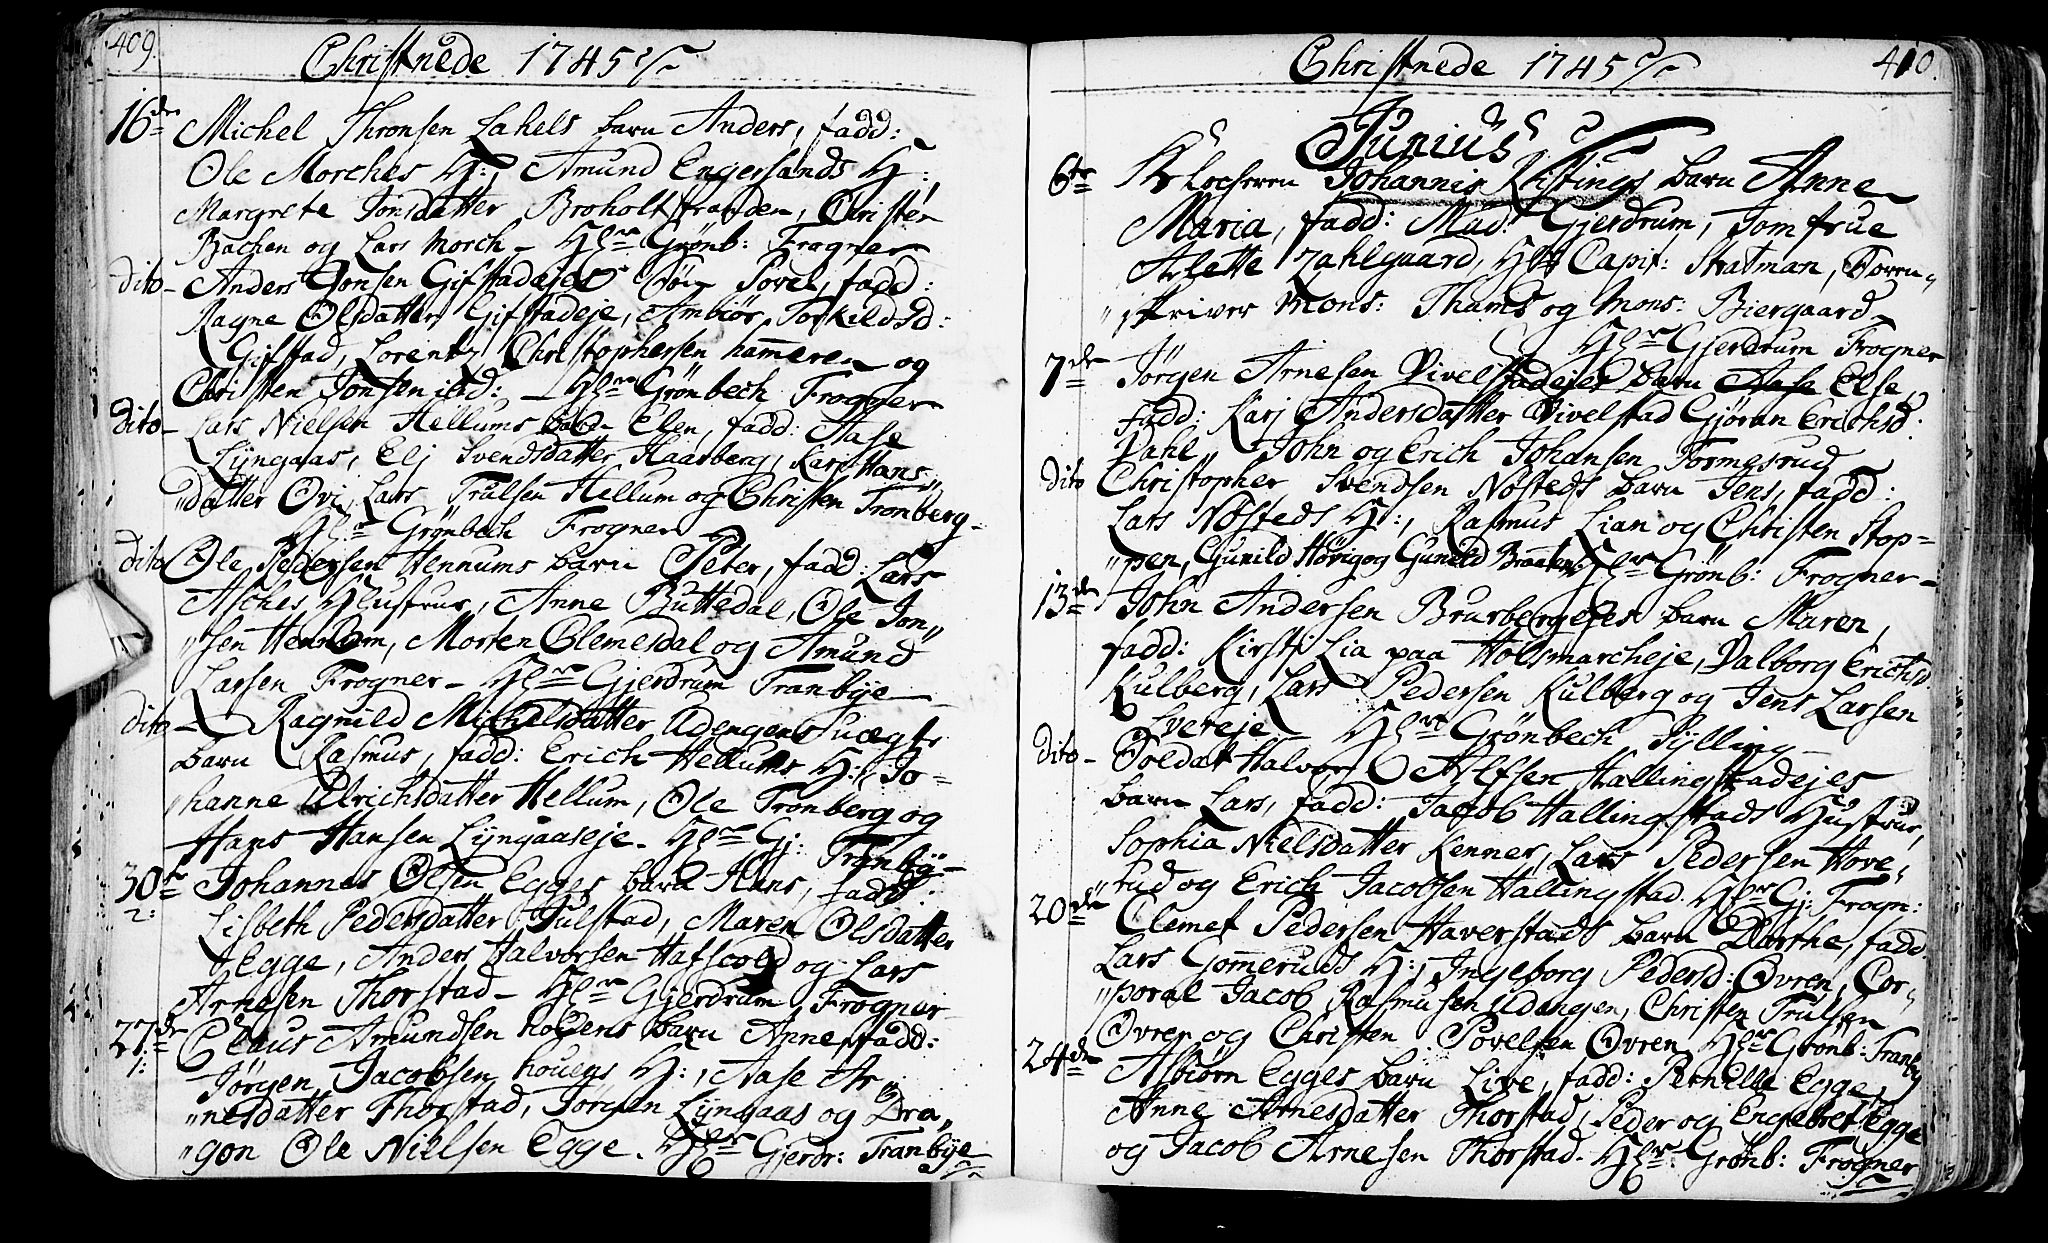 409.
Christnede 1745
16de Michel Thronsen Lahels barn Anders, fadd:
Ole Morches H:, Amund Engersands H:,
Margrete Jonsdatter Broholtstranden, Christen
Bachen og Lars Morch - Hr Grønb: Frogner
dito - Anders Jonsen Gifstadejes Søn Povel, fadd:
Ragne Olsdatter Gifstadeje, Ambiør Torkildsd:
Gifstad, Lorentz Christophersen hammeren og
Christen Jonsen ibd: - Hr Grönbech Frogner
dito - Lars Nielsen Hellums barn Elen, fadd: Aase
Lijngaas, Elj Svendsdatter Haarberg, Karj Hans„
„datter Ovi, Lars Trulsen Hellum og Christen Tronberg -
Hr Grönbech Frogner
dito Ole Pedersen Hennums barn Peter, fadd: Lars
Asches Hustrue, Anne Buttedal, Ole Jon„
„sen Hennum, Morten Clemesdal og Amund
Larsen Frogner - Hr Gjerdrum Tranbÿe -
dito - Ragnild Michelsdatter Udengens uægte
barn Rasmus, fadd: Erich Hellums H:, Jo=
hanne Ulrichsdatter Hellum, Ole Tronberg og
Hans Hansen Lijngaaseje - Hr Gj: Tranbÿ -
30te 2: Johannes Olsen Egges barn Hans, fadd:
Lisbeth Pedersdatter Julstad, Maren Olsdatter
Egge, Anders Halvorsen Hafscold og Lars
Arnesen Thorstad - Hr Gjerdrum Frogner
27de 1: Claus Amundsen hovens barn Anne, fadd:
Jørgen Jacobsen hovens H:, Aase Ar„
„nesdatter Thorstad, Jørgen Lijngaas og Dra„
„gon Ole Nielsen Egge. Hr Gjerdr: Tranbÿe
410.
Christnede 1745
Junius
6te Klocheren Johannis Kistings barn Anne
Maria, fadd: Mad: Gjerdrum, Jomfrue
Arlette Zahlgaard, Hr Capit: Stratman, Soren„
„skriver Mons: Thams og Mons: Biergaard
Hr Gjerdrum Frogner
7de Jørgen Arnesen Vivelstadejes barn Aase Else,
fadd: Karj Andersdatter Vivelstad Gjøran Erichsd:
Dahl, John og Erich Johansen Tormesrud
dito Christopher Svendsen Nösteds barn Jens, fadd:
Lars Nösteds H:, Rasmus Lian og Christen Stop=
„pen, Gunild Hörig og Gunild Braaten. Hr Grönb: Frogner -
13de John Andersen Brurbergejes barn Maren,
fadd: Kirstj Lia paa Holsmarcheje, Valborg Erichsd.
Kulberg, Lars Pedersen Kulberg og Jens Larsen
Svereje - Hr Grönbech Sylling -
dito - Soldat Halvor Alfsen Hallingstadejes
barn Lars, fadd: Jacob Hallingstads Hustrue,
Sophia Nielsdatter Kenner, Lars Pedersen Hove„
rud og Erich Jacobsen Hallingstad. Hr Gj: Frogn:
20de Clemet Pedersen Haverstads barn Dorthe, fadd.
Lars Gommeruds H:, Ingeborg Pedersd: Ovren, Cor„
„poral Jacob Rasmusen Udengen, Christen Trulsen
Ovren og Christen Povelsen Ovren Hr Grönb: Tranby
24de Asbiørn Egges barn Live, fadd: Pernille Egge,
Anne Arnesdatter Thorstad, Peder og Engebret Egge
og Jacob Arnesen Thorstad. Hr: Grönb: Frogner